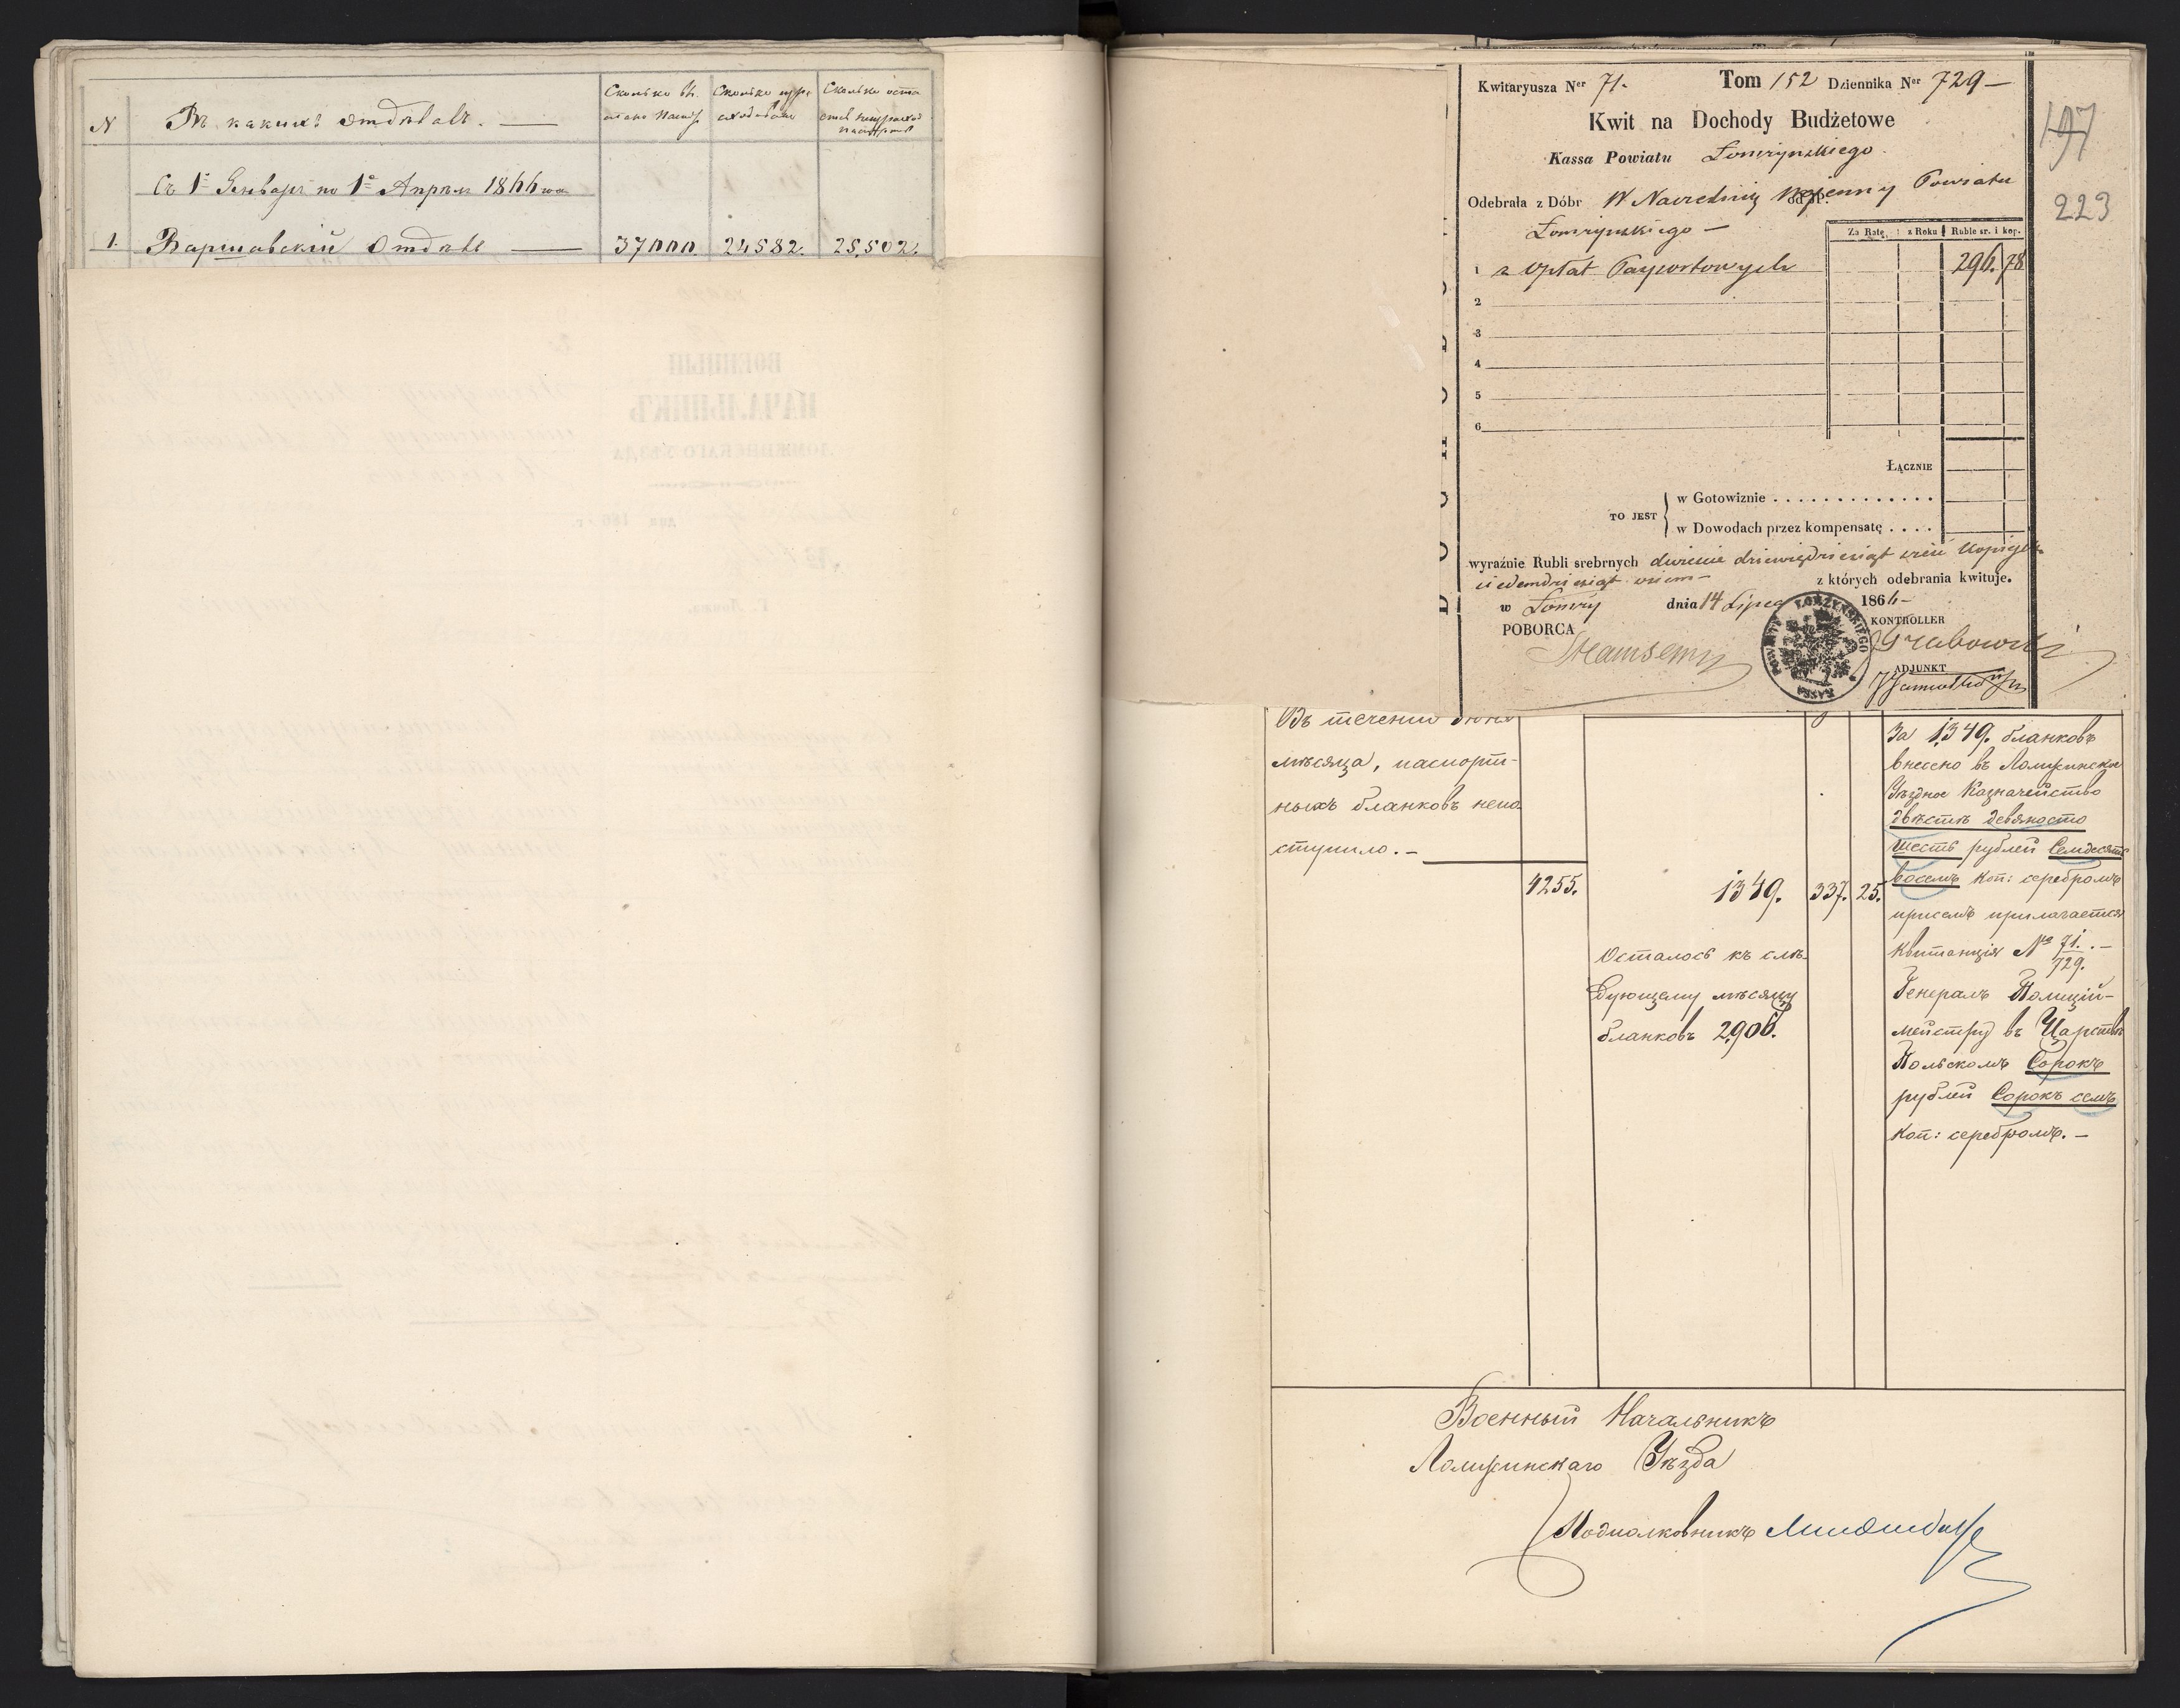 N
Въ какихъ отдѣлахъ.
Съ 1º Генваря по 1º Апрѣля 1866 год
1. Варшавскій Отдѣлъ 37000. 24582. 25,502.
Kwitaryusza Ner 71. Tom 152 Dziennika Ner 729
Kwit na Dochody Budżetowe
Kassa Powiatu Łomżyńskiego
Odebrała z Dóbr W Naczelnik Wojenny Powiatu
Łomżyńskiego
Za Ratę z Roku Ruble sr. i kop.
1 z Opłat Paszportowych 296. 78
2
3
4
5
6
ŁĄCZNIE
TO JEST
w Gotowiznie . . . . . . . . . . . . . .
w Dowodach przez kompensatę . . . .
wyraźnie Rubli srebrnych dwieście dziewięćdziesiąt sześć kopiejek
siedemdziesiąt osiem
z których odebrania kwituje.
w Łomży dnia 14 Lipca 1866
POBORCA
KONTROLLER
Grabowski
ADJUNKT
KASSA POWIATU ŁOMŻYŃSKIEGO
197
223
Въ теченіи Іюня
мѣсяца, паспорт-
ныхъ бланковъ непо
ступило. —
4255.
1349. 337. 25.
Осталось къ слѣ
дующему мѣсяцу
бланковъ 2,906.
За 1,349. бланковъ
внесено въ Ломжинско
Уѣздное Казначейство
двѣсти девяносто
шесть рублей семдесятъ
восемь коп: серебромъ
присемъ прилагается
квитанція № 71./729. —
Генералъ Полицій-
мейстру въ Царствѣ
Польскомъ Сорокъ
рублей Сорокъ семь
коп: серебромъ. —
Военный Начальникъ
Ломжинскаго Уѣзда
Подполковникъ